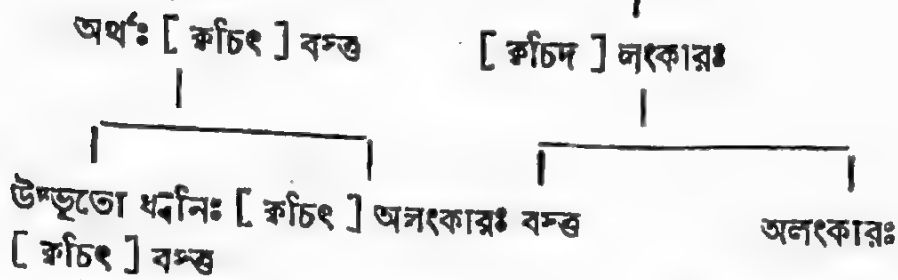 অর্থঃ [ ক্বচিৎ ] বস্তু
[ ক্বচিদ ] লংকারঃ
উদ্ভূতো ধ্বনিঃ [ ক্বচিৎ ] অলংকারঃ বস্তু
অলংকারঃ
[ ক্বচিৎ ] বস্তু